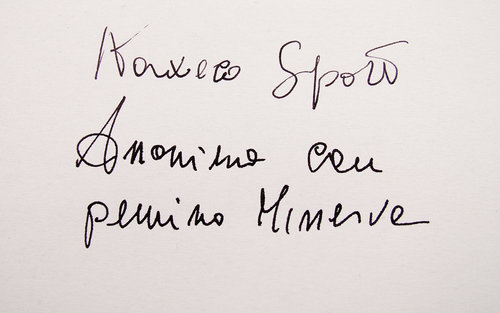 Kaweco Sport
Anonima con
pennino Minerva